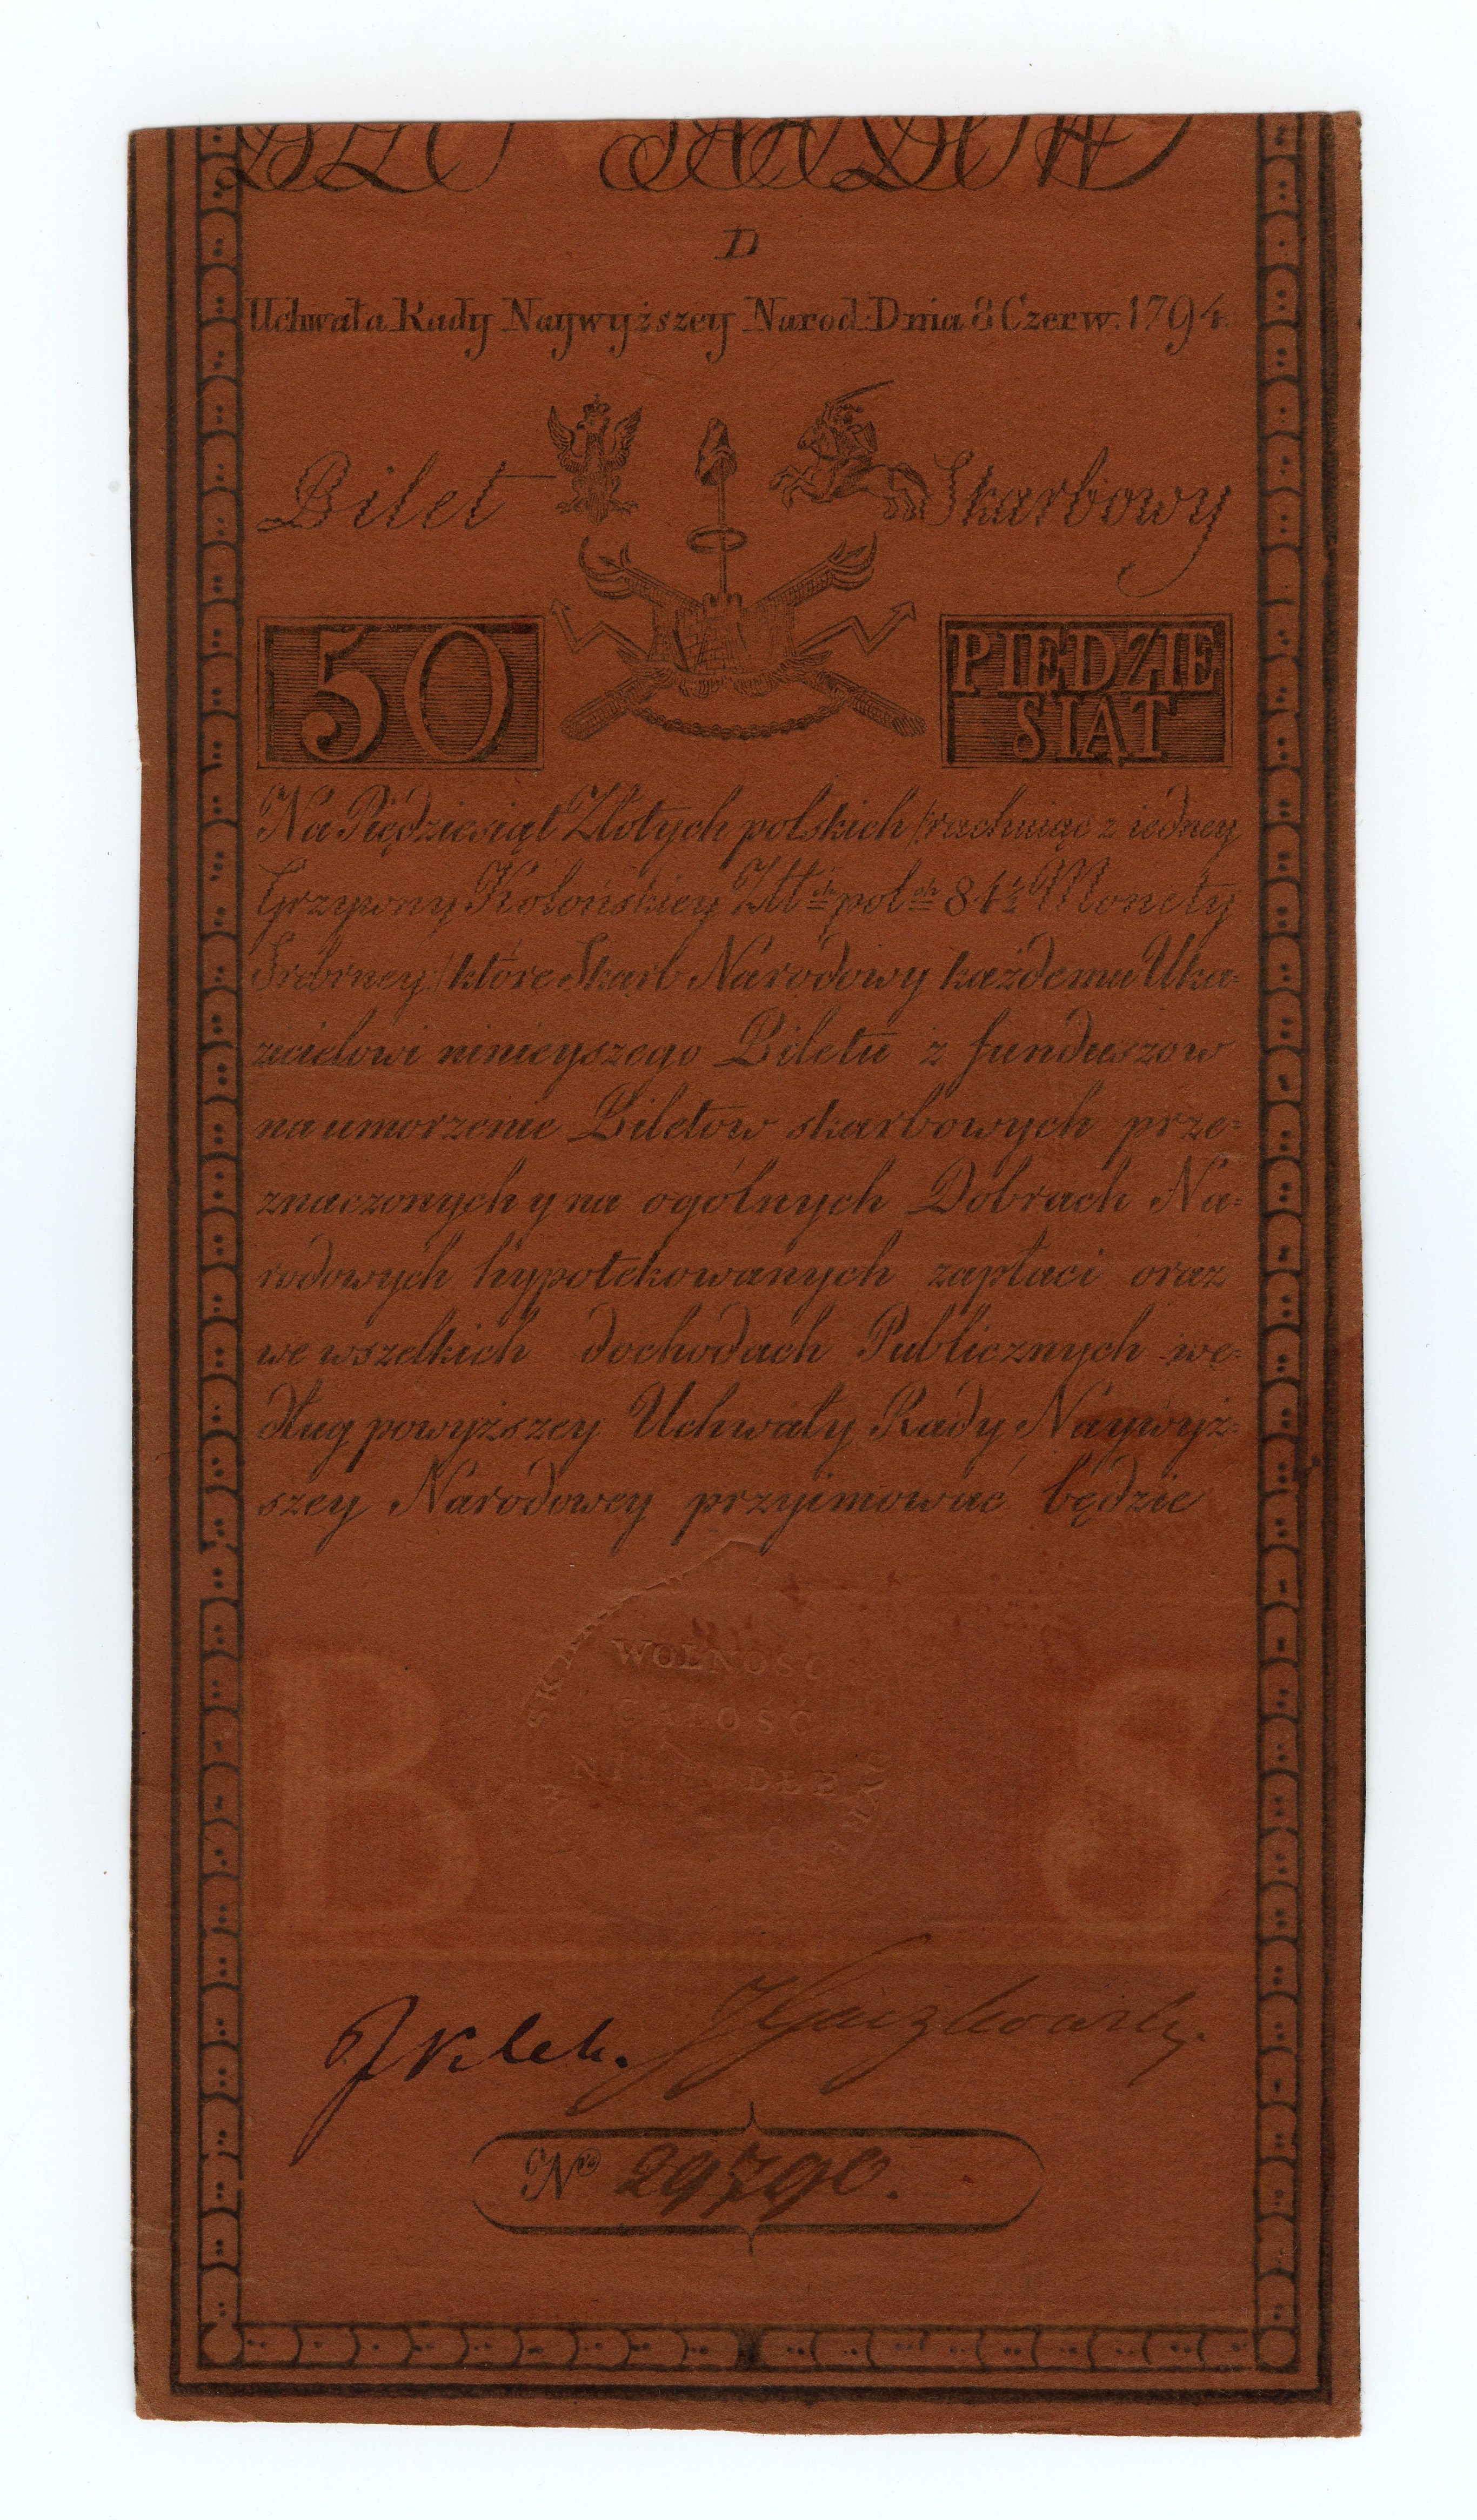 D
Uchwała Rady Naywyższey Narod: Dnia 8 Czerw. 1794.
Bilet Skarbowy
50 PIEDZIE
SIĄT
Na Piędziesiąt Złotych polskich /rachuiąc z iedney
Grzywny Kolońskiey Złł ch pol ch 84½ Monety
Srebrney/ które Skarb Narodowy każdemu Uka=
zicielowi ninieyszego Biletu z funduszow
na umorzenie Biletow skarbowych prze=
znaczonych y na ogólnych Dobrach Na=
rodowych hypotekowanych zapłaci oraz
we wszelkich dochodach Publicznych we=
dług powyższey Uchwały Rady Naywyż=
szey Narodowey przyimować będzie
WOLNOSC
CAŁOSC
B 8
No 29790.